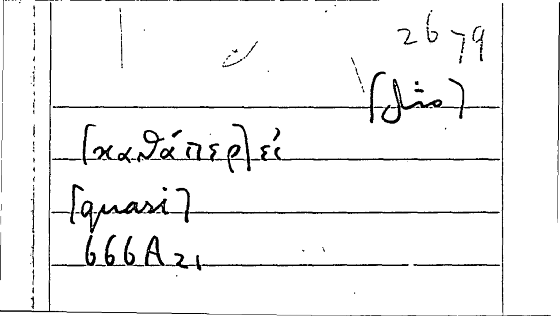 2679
[διο]
[καθάπερ] εἰ
[quasi]
666A21